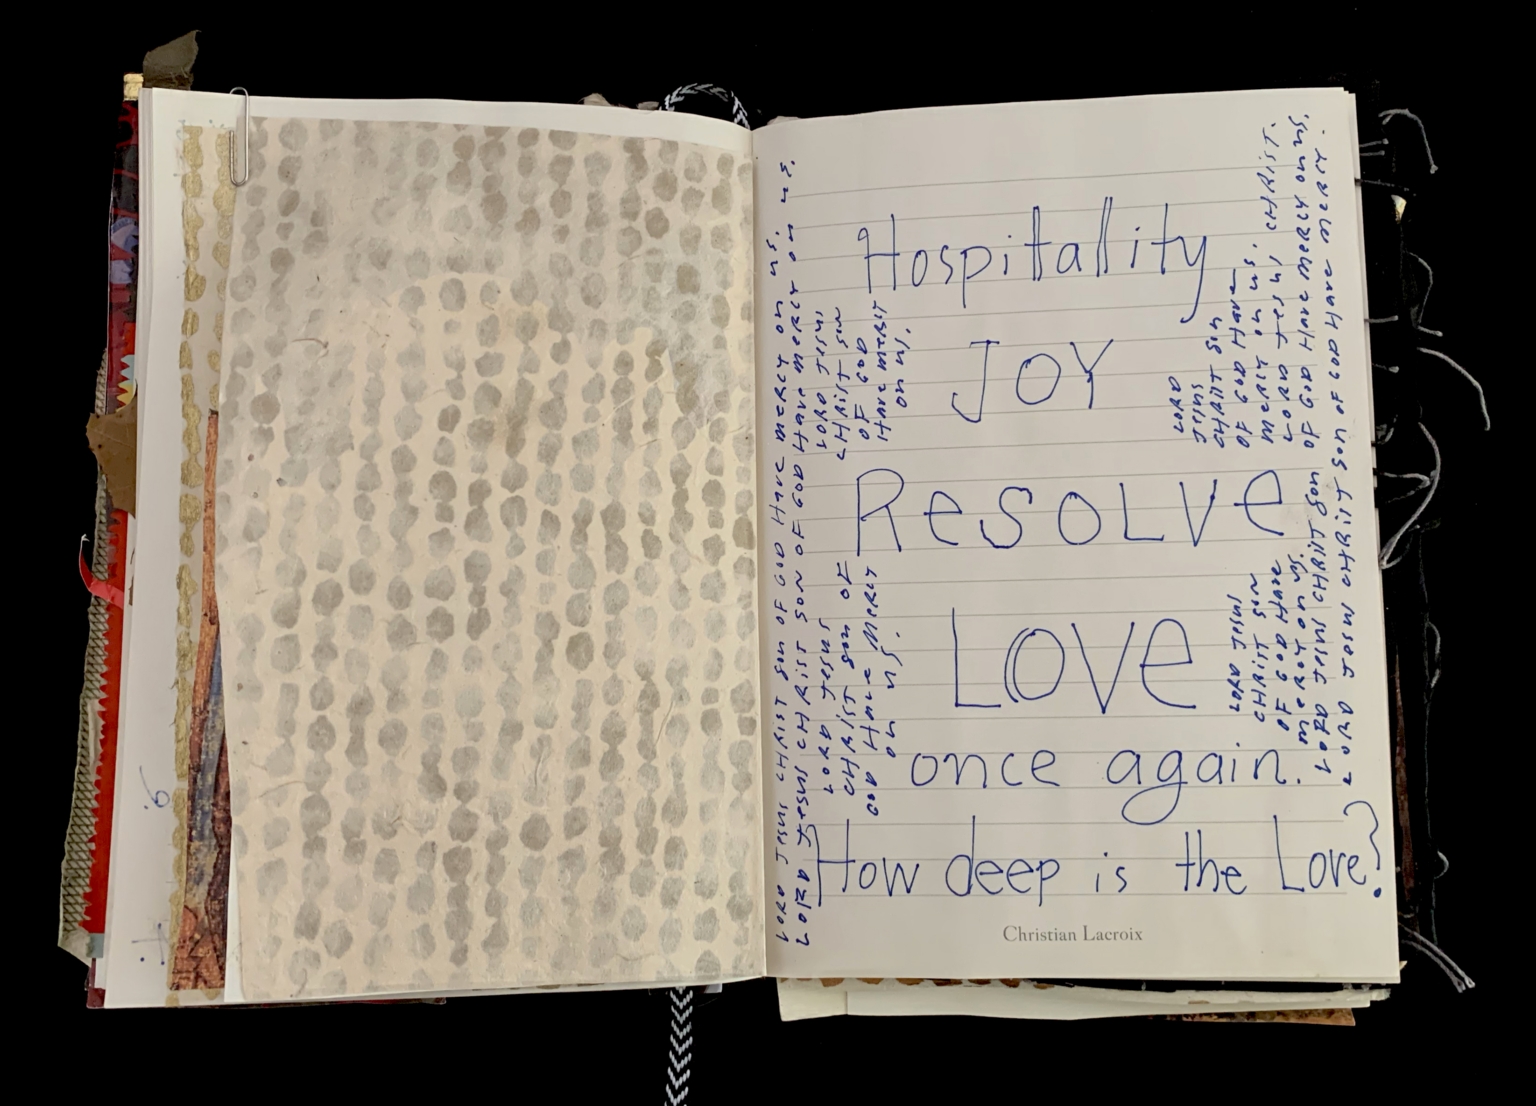 Hospitality
JOY
Resolve
Love
once again.
How deep is the Love?
Christian Lacroix
LORD JESUS CHRIST son OF GOD Have mercy on us.
LORD JESUS CHRIST SON OF GOD Have mercy on us.
LORD JESUS
CHRIST son
OF GOD
Have mercy
on us,
LORD JESUS
CHRIST son OF
GOD Have Mercy
on us.
LORD
JESUS
CHRIST son
OF GOD Have
mercy on us.
LORD Jesus CHRIST.
LORD JESUS
CHRIST son
OF GOD Have
mercy on us.
LORD JESUS CHRIST son OF GOD Have mercy on us,
LORD JESUS CHRIST son OF GOD Have mercy.